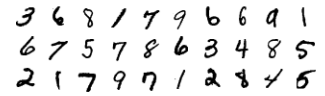 3 6 8 1 7 9 6 6 9 1
6 7 5 7 8 6 3 4 8 5
2 1 7 9 7 1 2 8 4 5